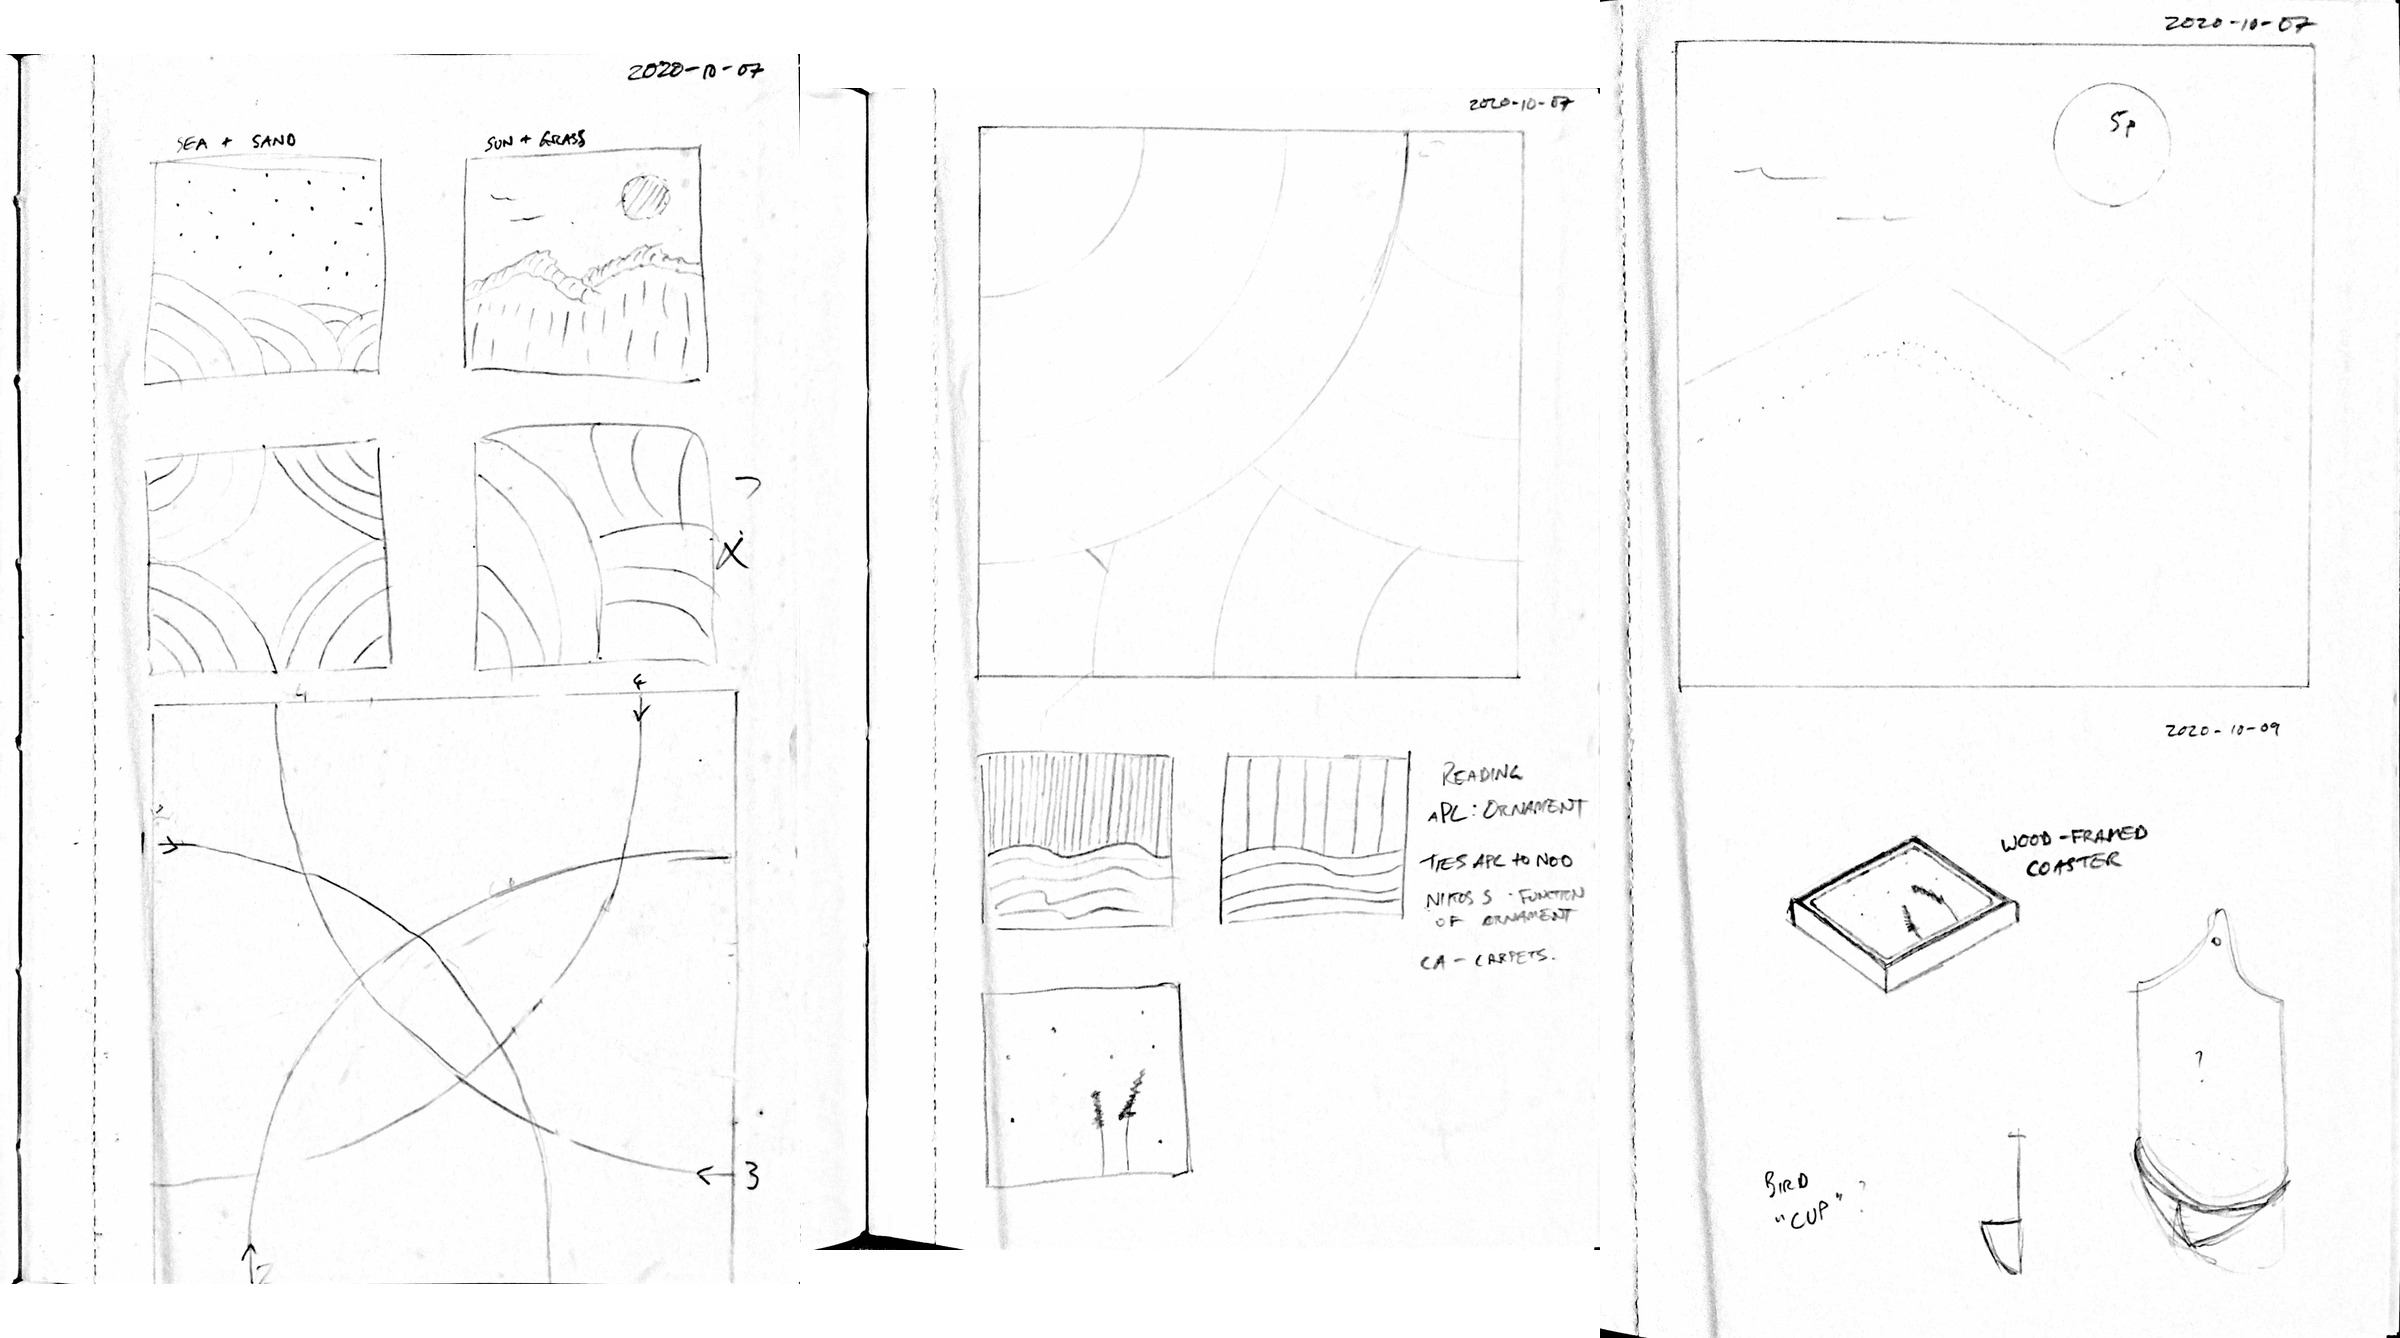 2020-10-07
SEA + SAND
SUN + GRASS
?
X
4
4
1
3
2
2020-10-07
READING
APL: ORNAMENT
TIES APL to NOO
NIKOS S - FUNCTION
OF ORNAMENT
CA - CARPETS.
2020-10-07
5p
2020-10-09
WOOD-FRAMED
COASTER
?
BIRD
"CUP" ?